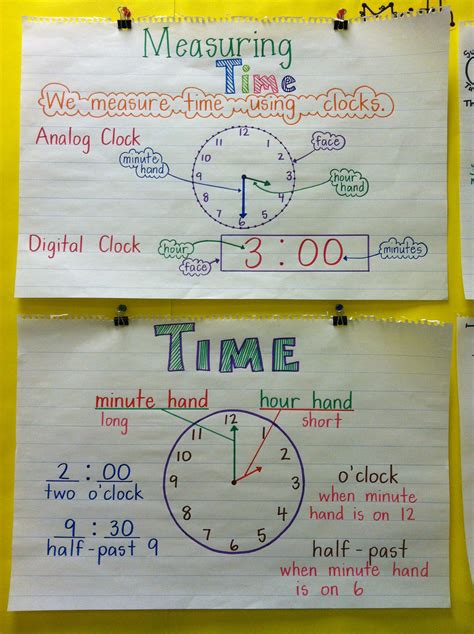 Measuring
Time
We measure time using clocks.
Analog Clock
face
minute hand
hour hand
12
1
2
3
4
5
6
7
8
9
10
11
Digital Clock
hour
face
3:00
minutes
TIME
minute hand
long
hour hand
short
12
1
2
3
4
5
6
7
8
9
10
11
2:00
two o'clock
9:30
half-past 9
o'clock
when minute
hand is on 12
half-past
when minute hand
is on 6